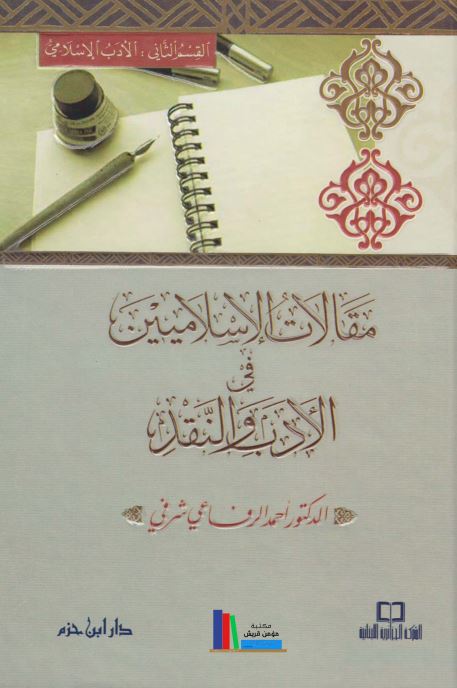 القسم الثاني : الأدب الإسلامي
مقالات الإسلاميين
في
الأدب والنقد
الدكتور أحمد الرفاعي شرفي
الشركة الجزائرية اللبنانية
مكتبة
مؤمن قريش
دار ابن حزم